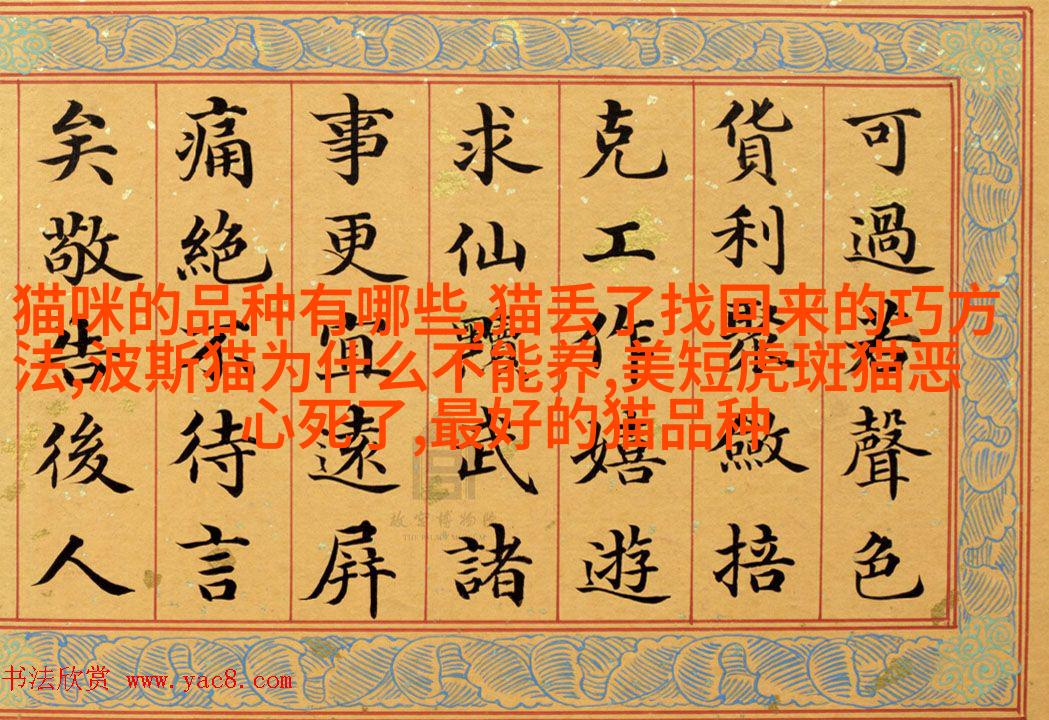 可過若聲色
貨利聚斂掊
克工作嬉遊
求仙黷武諸
事更宜遠屏
痛絕不待言
矣敬告後人
猫咪的品种有哪些,猫丢了找回来的巧方
法,波斯猫为什么不能养,美短虎斑猫恶
心死了,最好的猫品种
故宫博物院
THE PALACE MUSEUM
书法欣赏 www.yac8.com